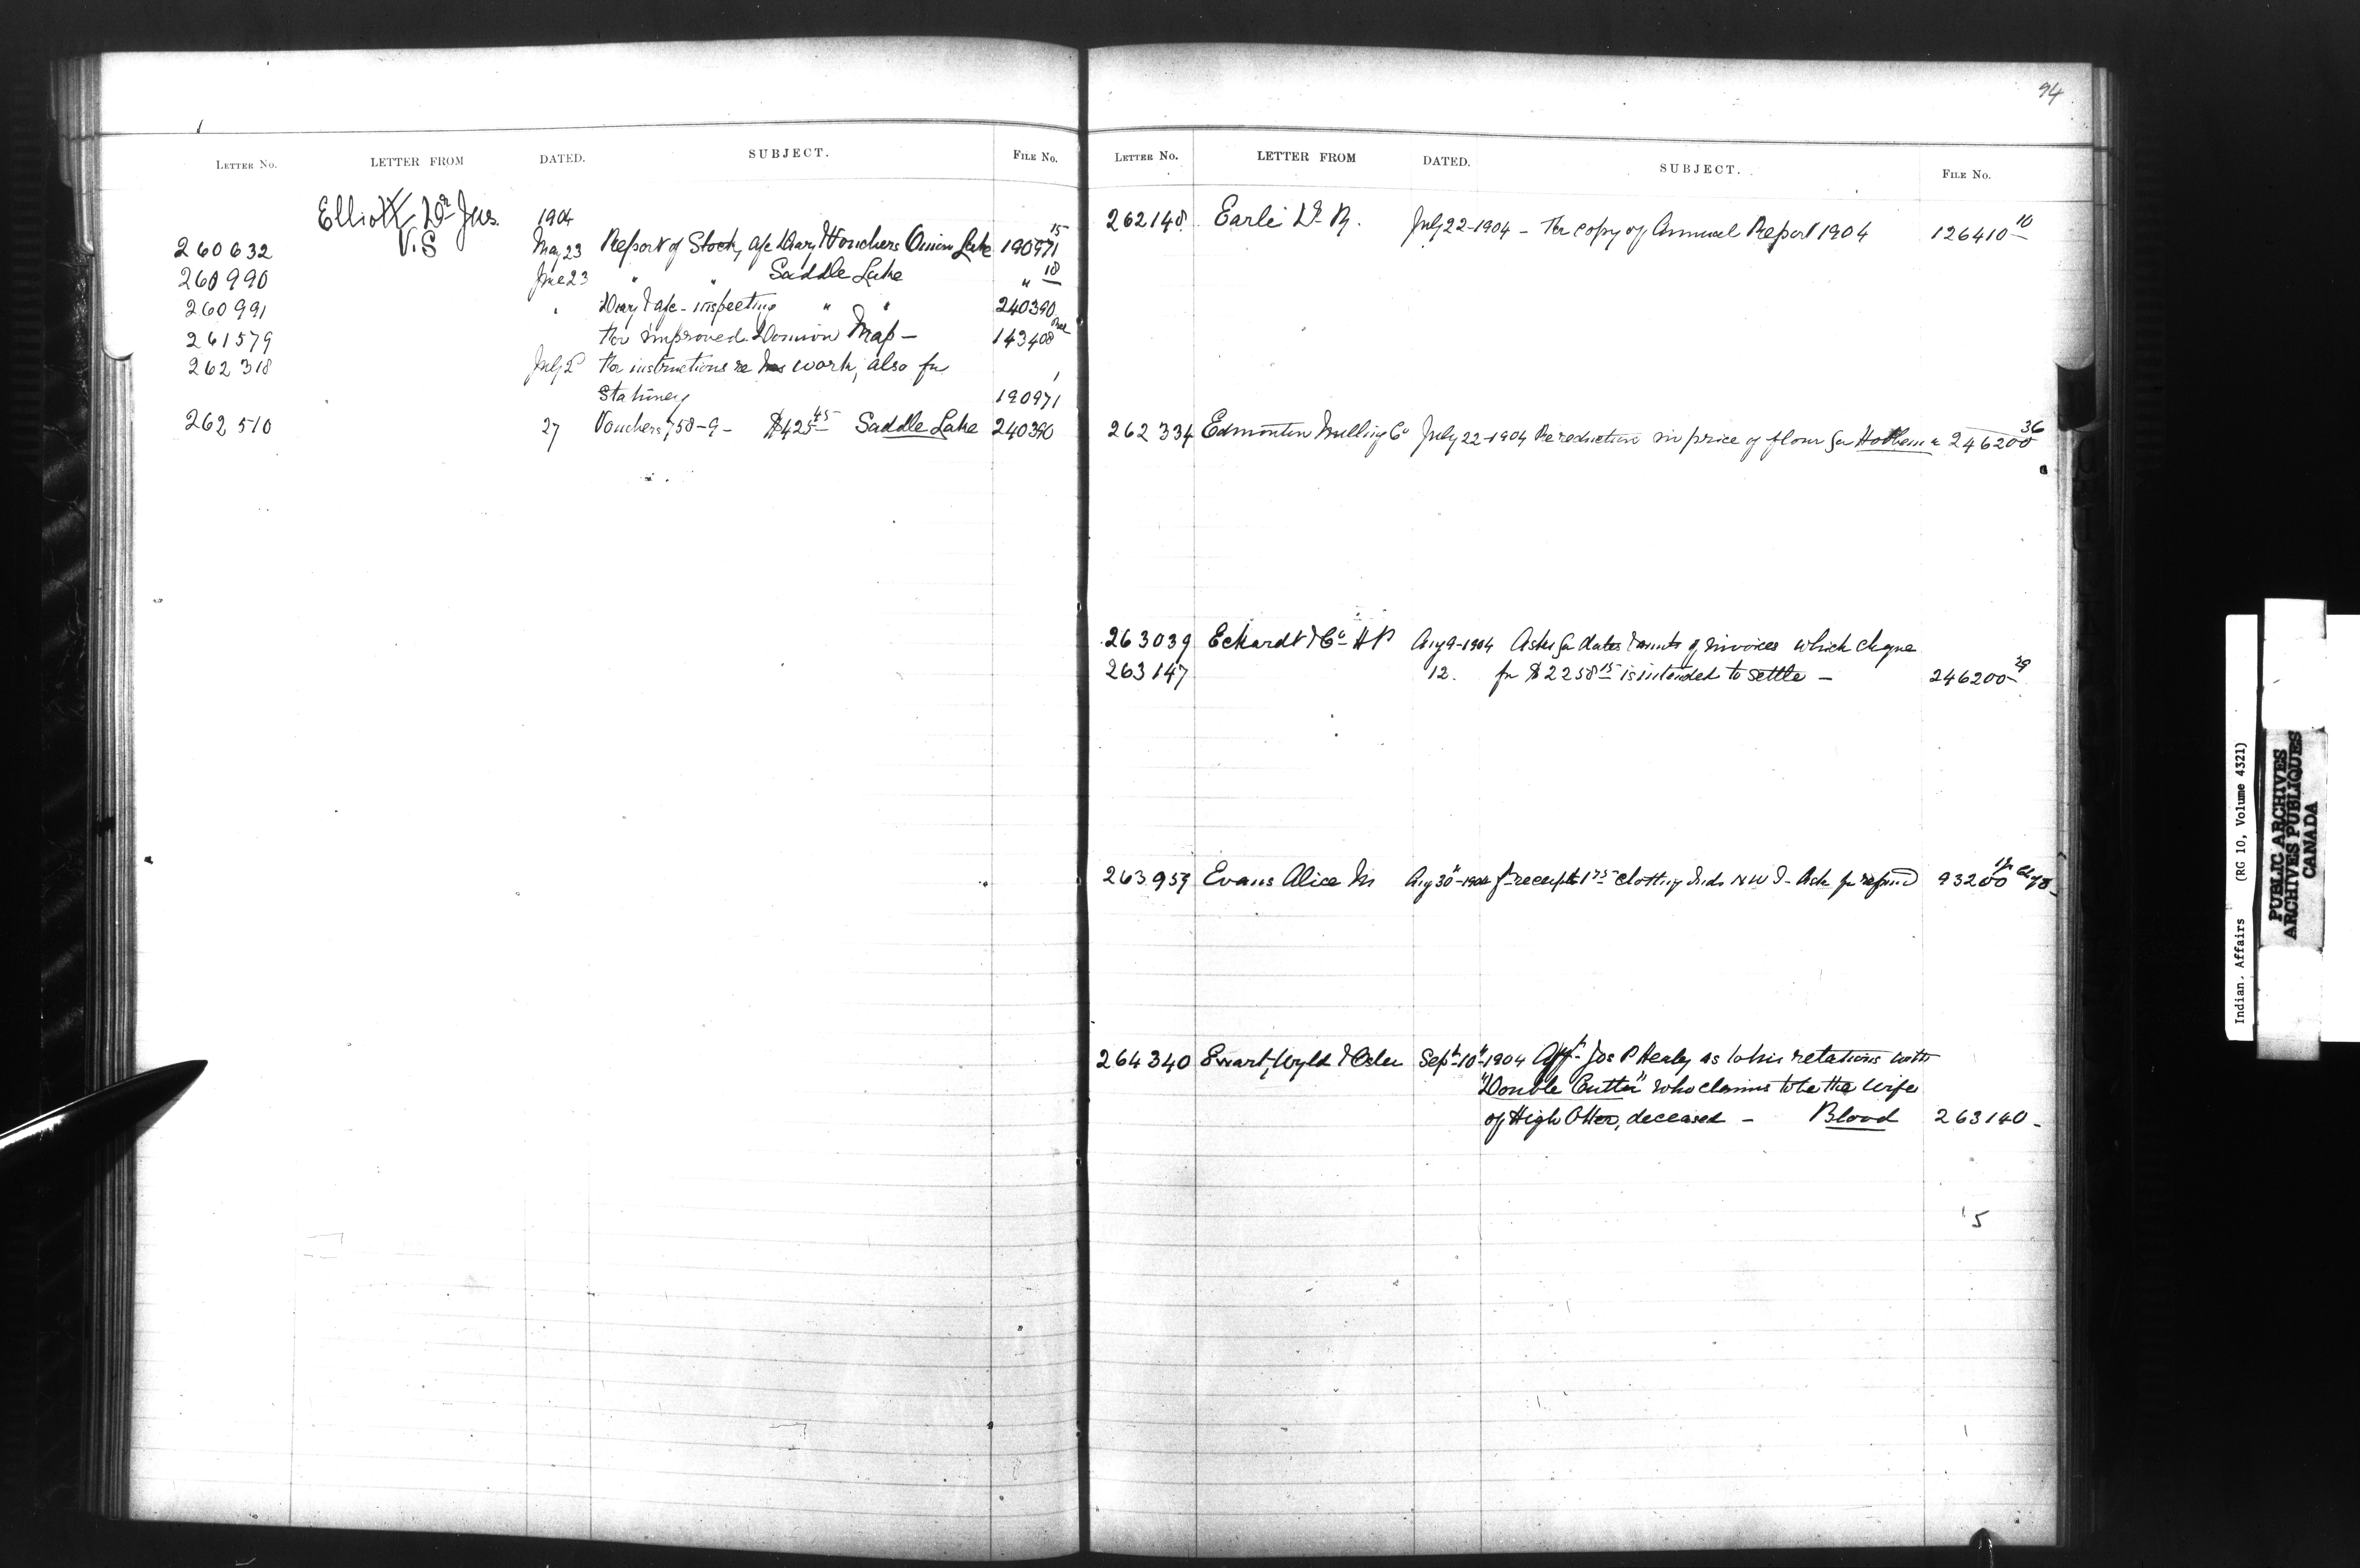 94
LETTER No. LETTER FROM DATED. SUBJECT. FILE No.
Elliott Dr Jas. 1904
V.S
260632 May 23 Report of Stock, a/c Diary & Vouchers Onion Lake 190971 15
260990 June 23 " " Saddle Lake " 18
260991 " Diary & a/c - inspecting " " 240390
261579 For improved Dominion Map - 143408
262318 July 2 For instructions re his work, also for
Stationery 190971
262510 27 Vouchers 758-9 - $425 45 Saddle Lake 240390
LETTER No. LETTER FROM DATED. SUBJECT. FILE No.
262148 Earle Dr R. July 22-1904 - For copy of Annual Report 1904 126410 10
262334 Edmonton Milling Co July 22-1904 Re reduction in price of flour for 246200 36
263039 Eckardt & Co H P Aug 9-1904 Asks for dates & amts of invoices which cheque
263147 12. for $2258 15 is intended to settle - 246200 29
263959 Evans Alice M Aug 30"-1904 frt receipt 1 75 clothing Inds N W T - Ask for refund 93200
264340 Ewart, Wyld & Osler Sept 10"-1904 Afft Jos P Healy as to his relations with
"Double Cutter" who claims to be the wife
of High Otter, deceased - Blood 263140 -
5
Indian Affairs (RG 10, Volume 4321)
PUBLIC ARCHIVES
ARCHIVES PUBLIQUES
CANADA